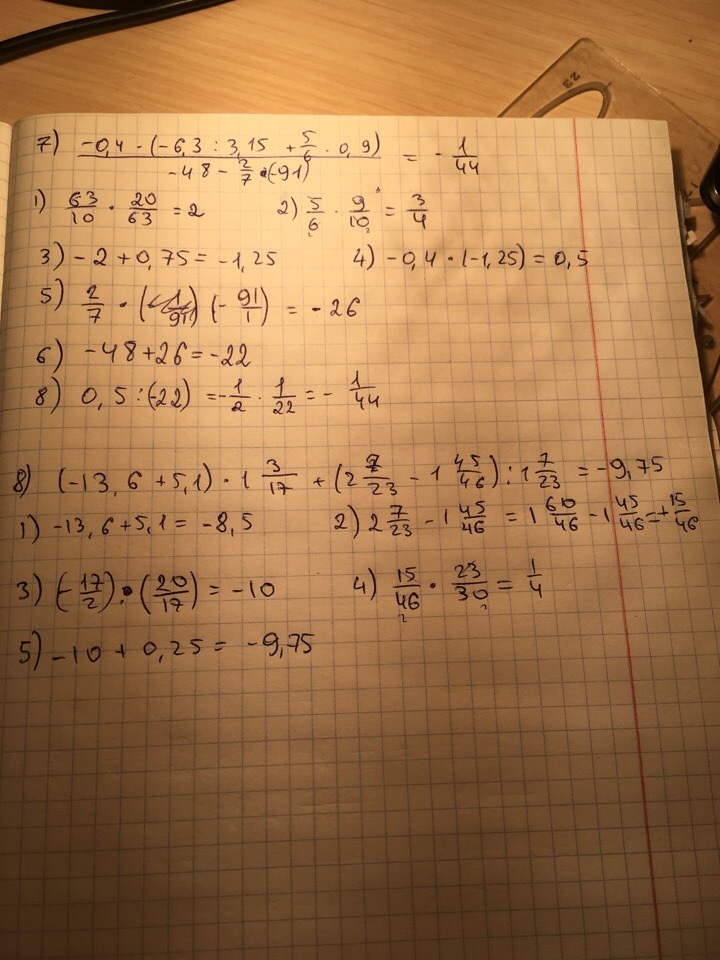 23
7) (-0,4 · (-6,3 : 3,15 + 5/6 · 0,9)) / (-48 - 2/7 · (-91)) = - 1/44
1) 63/10 · 20/63 = 2 2) 5/6 · 9/10 = 3/4
3) -2 + 0,75 = -1,25 4) -0,4 · (-1,25) = 0,5
5) 2/7 · (-91/1) = -26
6) -48 + 26 = -22
8) 0,5 : (-22) = -1/2 · 1/22 = - 1/44
8) (-13,6 + 5,1) · 1 3/17 + (2 7/23 - 1 45/46) : 1 7/23 = -9,75
1) -13,6 + 5,1 = -8,5 2) 2 7/23 - 1 45/46 = 1 60/46 - 1 45/46 = + 15/46
3) (-17/2) · (20/17) = -10 4) 15/46 · 23/30 = 1/4
5) -10 + 0,25 = -9,75